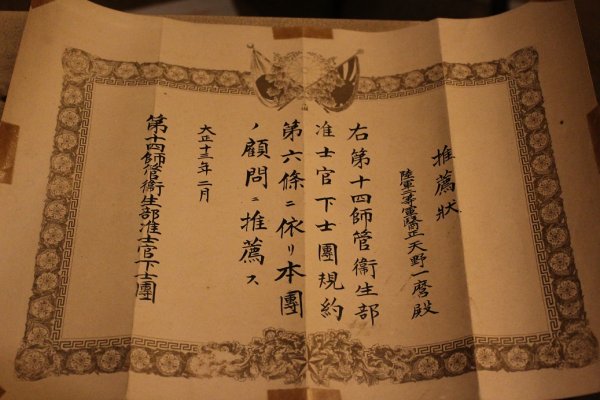 推薦狀
陸軍三等軍醫正天野一麿殿
右第十四師管衞生部
准士官下士團規約
第六條ニ依リ本團
ノ顧問ニ推薦ス
大正十三年二月
第十四師管衞生部准士官下士團